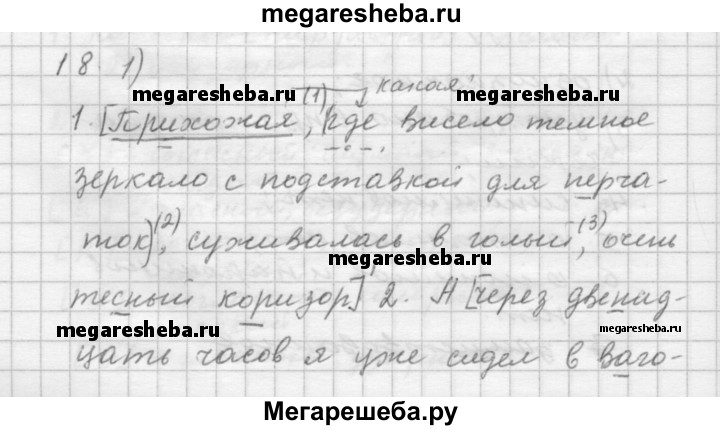 megaresheba.ru
18. 1)
megaresheba.ru (1) какая? megaresheba.ru
1. [Прихожая, (где висело темное
зеркало с подставкой для перча-
ток)(2), суживалась в голый,(3) очень
megaresheba.ru
тесный коризор] 2. А [через двенад-
megaresheba.ru megaresheba.ru
цать часов я уже сидел в ваго-
Мегарешеба.ру